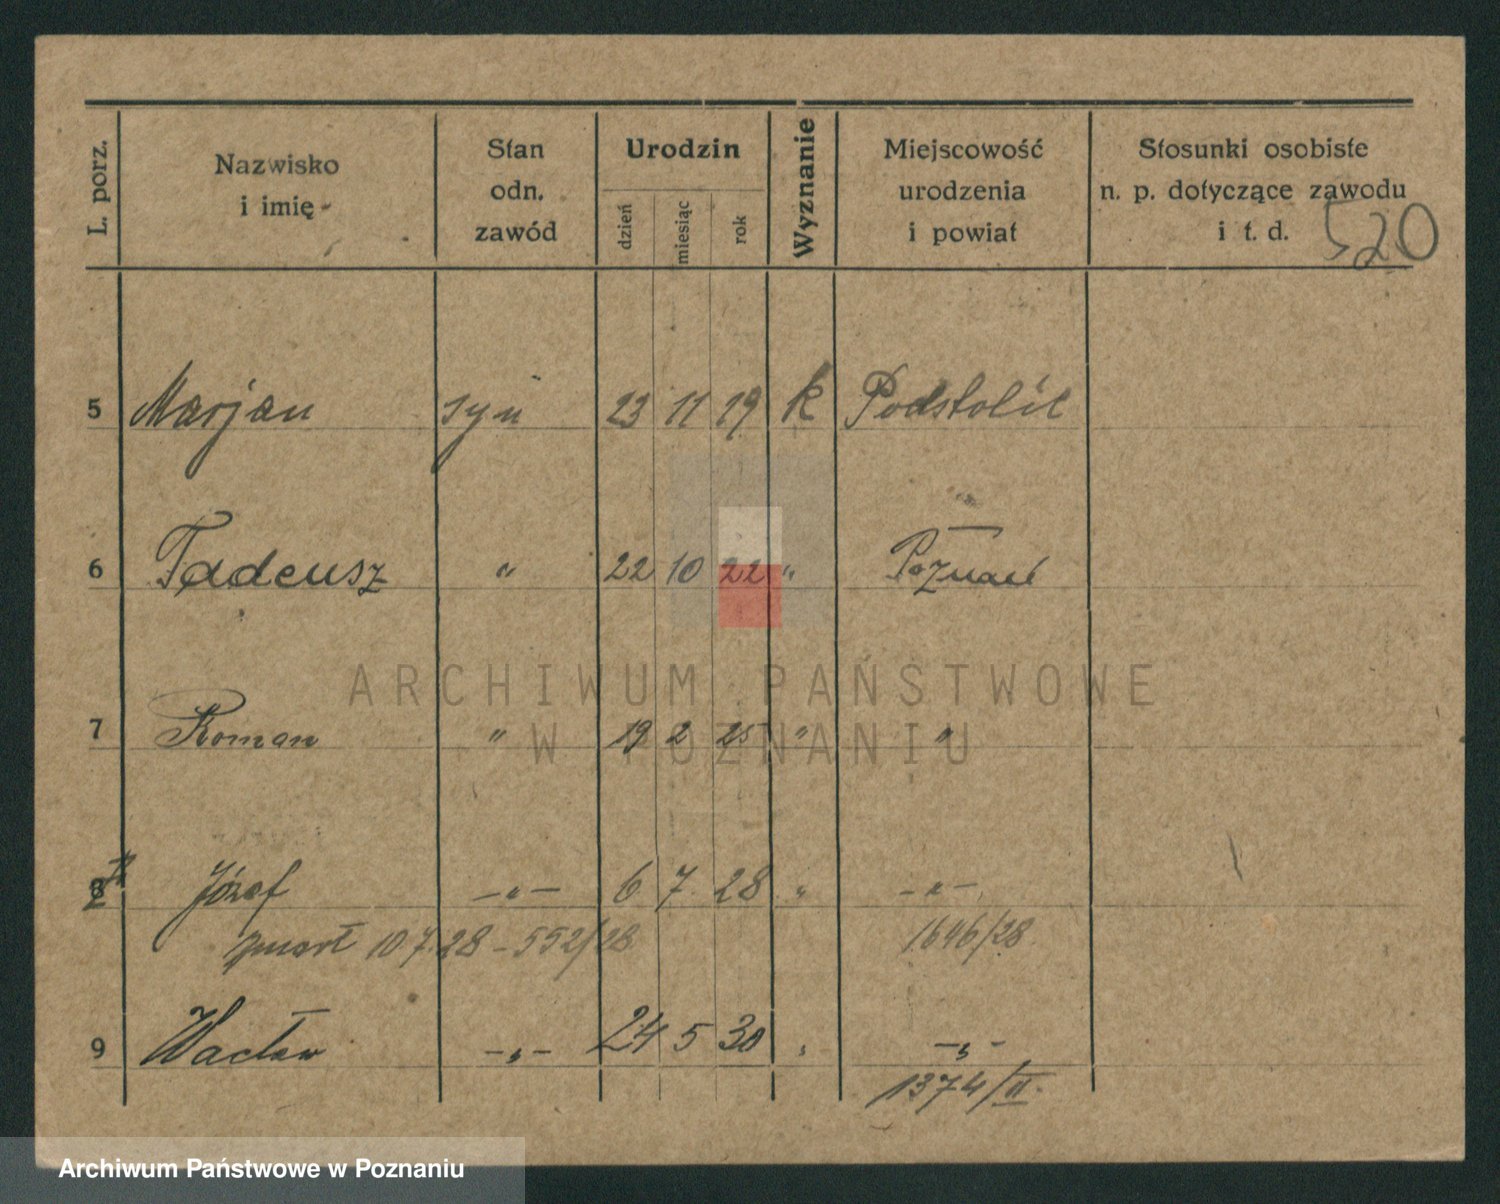 L. porz. Nazwisko i imię Stan odn. zawód Urodzin dzień miesiąc rok Wyznanie Miejscowość urodzenia i powiat Stosunki osobiste n. p. dotyczące zawodu i t. d.
520
5 Marjan syn 23 11 19 k Podstolic
6 Tadeusz " 22 10 22 " Poznań
ARCHIWUM PAŃSTWOWE
W POZNANIU
7 Roman " 19 2 25 " "
8 Józef —"— 6 7 28 " —"—
zmarł 10 7. 28 – 552/28 1646/28
9 Wacław —„— 24 5 30 „ —„—
1374/II.
Archiwum Państwowe w Poznaniu